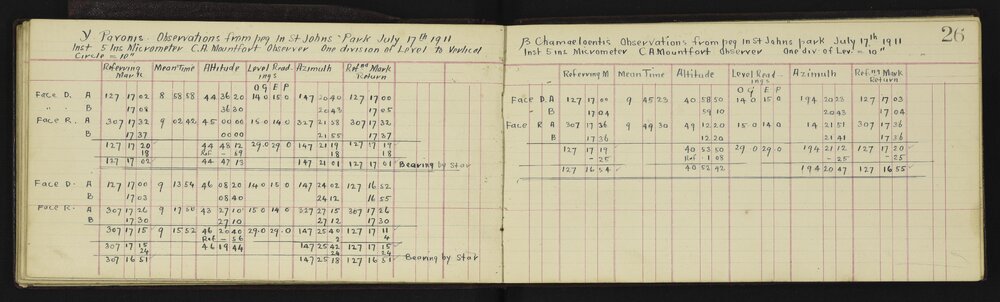 γ Pavonis. Observations from peg in St Johns Park July 17th 1911
Inst 5 Ins Micrometer C.A. Mountfort Observer One division of Level to Vertical
Circle = 10"
Referring Mark Mean Time Altitude Level Readings Azimuth Refng Mark Return
O G E P
Face D. A 127 17 02 8 58 58 44 36 20 14 0 15 0 147 20 40 127 17 00
" " B 17 08 36 30 20 43 17 05
Face R. A 307 17 32 9 02 42 45 00 00 15 0 14 0 327 21 58 307 17 32
B 17 37 00 00 21 55 17 37
127 17 20 44 48 12 29.0 29.0 147 21 19 127 17 19
18 Ref - 59 18 18
127 17 02 44 47 13 147 21 01 127 17 01 Bearing by Star
Face D. A 127 17 00 9 13 54 46 08 20 14 0 15 0 147 24 02 127 16 52
B 17 03 08 40 24 12 16 55
Face R. A 307 17 26 9 17 50 43 27 10 15 0 14 0 327 27 15 307 17 26
B 17 30 27 10 27 12 17 30
307 17 15 9 15 52 46 20 40 29.0 29.0 147 25 40 127 17 11
Ref - 56 2 4
307 17 15 46 19 44 147 25 42 127 17 15
24 24 24
307 16 51 147 25 18 127 16 51 Bearing by Star
26
β Chamaeloentis Observations from peg in St Johns park July 17th 1911
Inst 5 Ins Micrometer C A Mountfort Observer One div of Lev = 10"
Referring M Mean Time Altitude Level Readings Azimuth Refng Mark Return
O G E P
Face D. A 127 17 00 9 45 23 40 58 50 14 0 15 0 194 20 23 127 17 03
" B 17 04 59 10 20 43 17 04
Face R A 307 17 36 9 49 30 49 12 20 15 0 14 0 14 21 51 307 17 36
B 17 36 12 20 21 41 17 36
127 17 19 40 53 50 29 0 29 0 194 21 12 127 17 20
- 25 Ref - 1 08 - 25 - 25
127 16 54 40 52 42 194 20 47 127 16 55